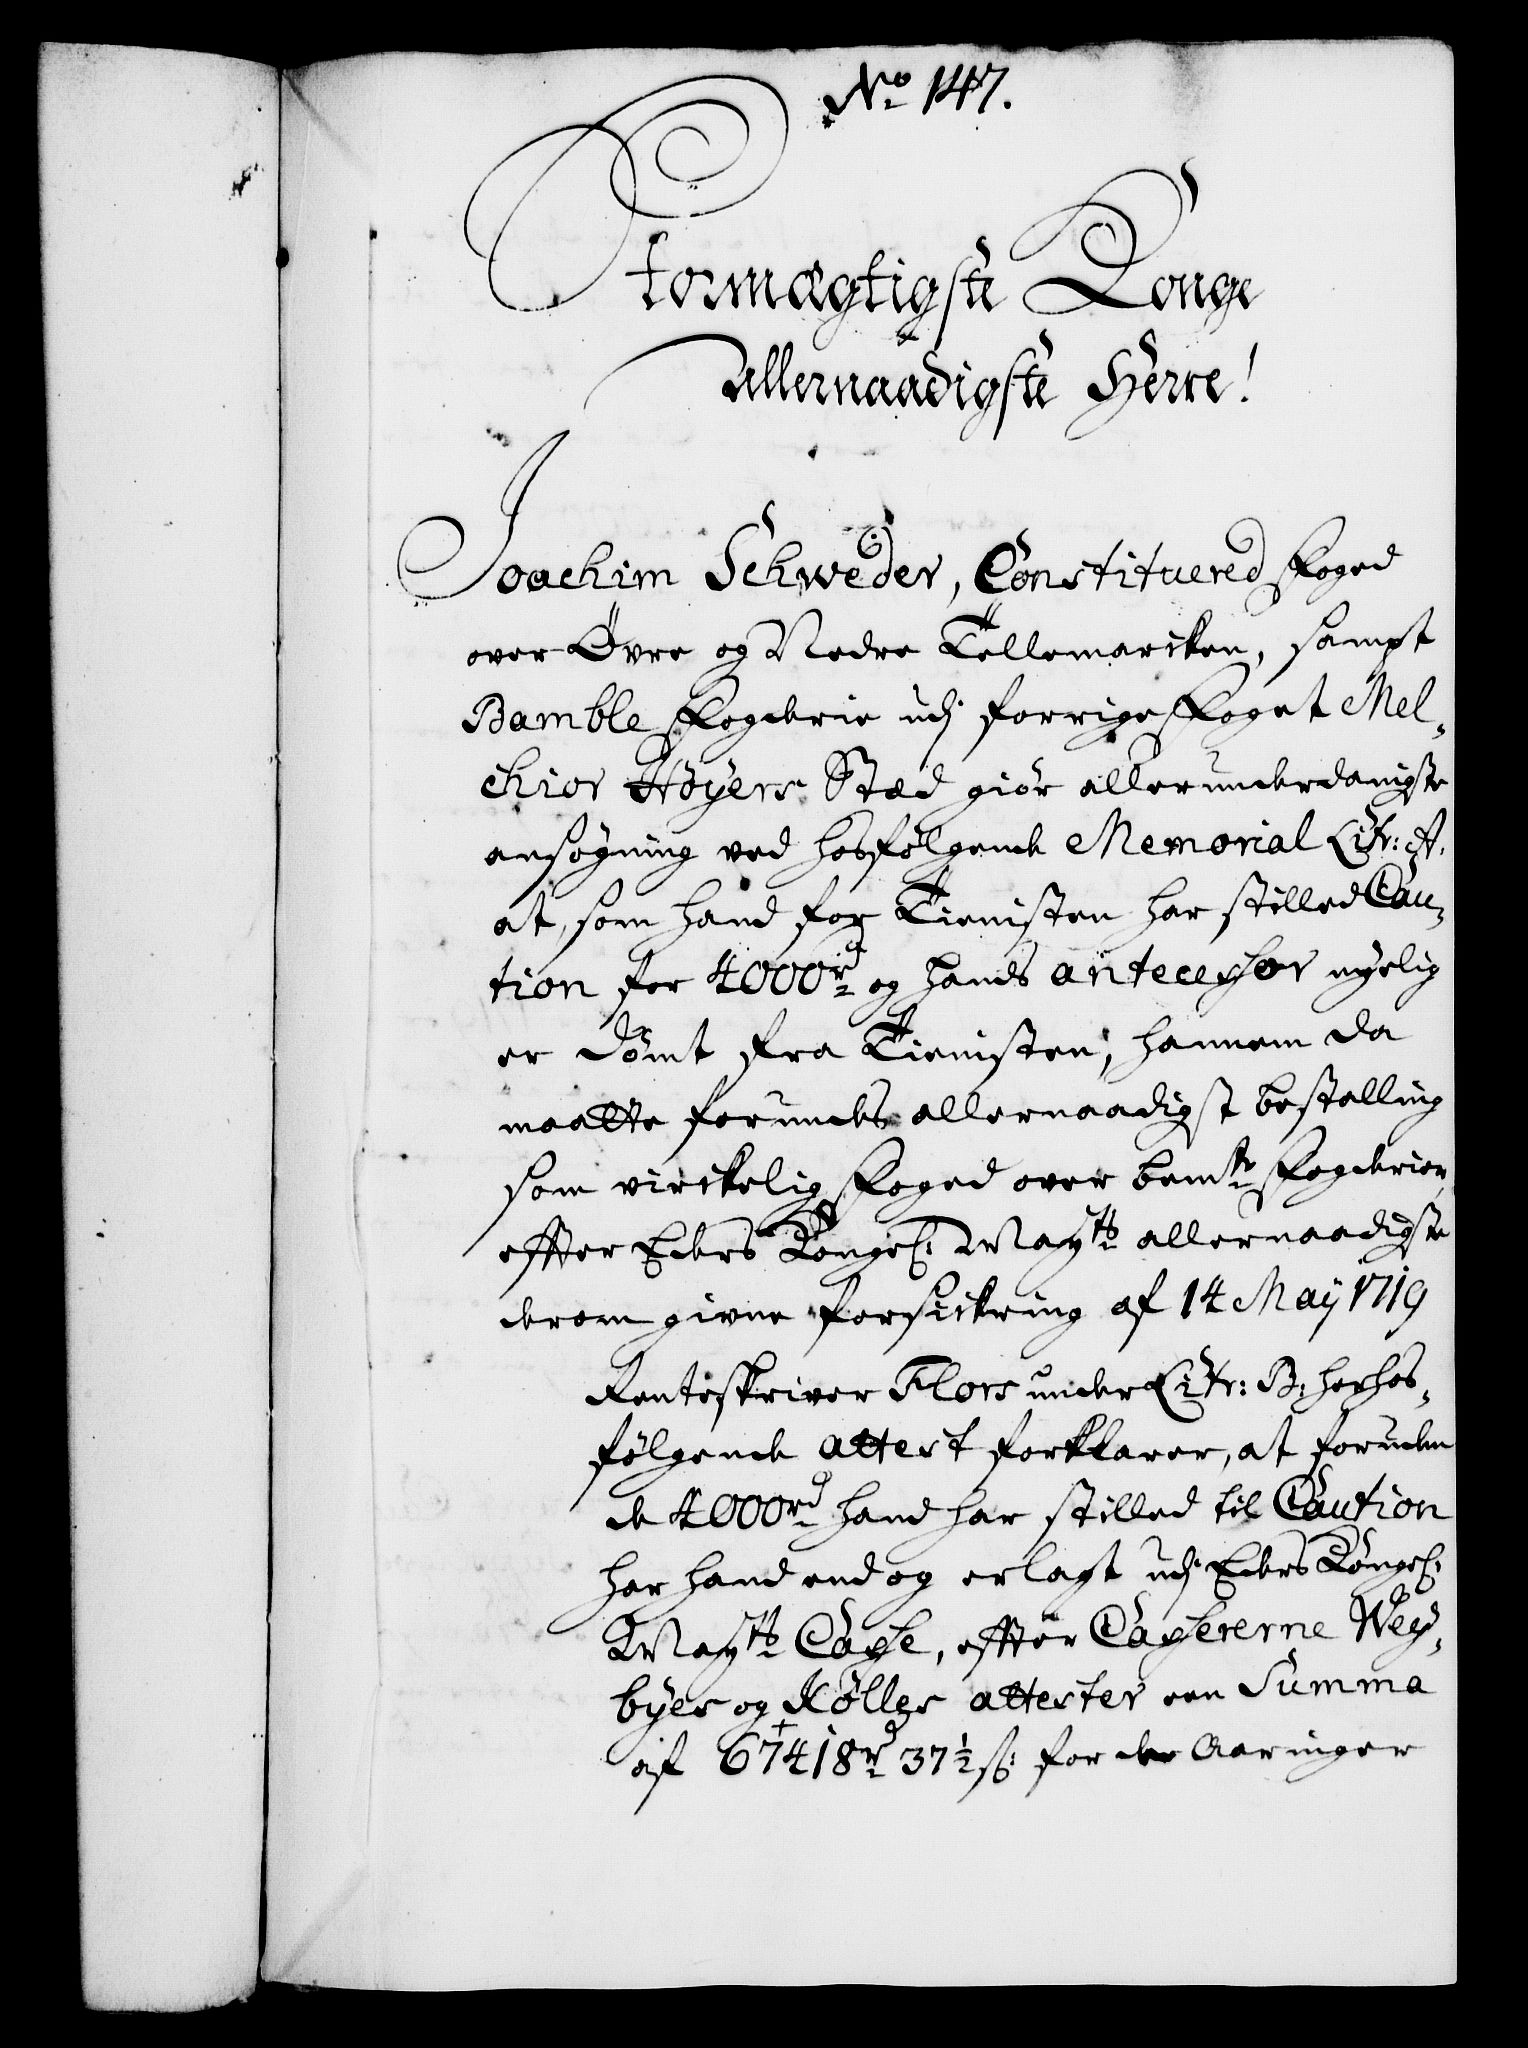 No 147.
Stormægtigste Konge
Allernaadigste Herre!
Joachim Schweder, Constituered Foged
over Øvre og Nedre Tellemarcken, sampt
Bamble Fogderie udj forrige Foget Mel-
chior Høyers Stæd giør allerunderdanigste
ansøgning ved hosfølgende Memorial Litr: A.
at, som hand for Tienisten har stilled Cau-
tion for 4000 rd og hands antecessor nyelig
er dømt fra Tienisten, hannem da
maatte forundes allernaadigst bestalling
som virckelig Foged over bemte Fogderier
effter Eders Kongel: Mayts allernaadigste
derom givne forsickring af 14 May 1719
Renteskriver Flors under Litr: B: herhos-
følgende attest forklarer, at foruden
de 4000 rd hand har stilled til Caution
har hand end og erlagt udj Eders Kongel:
Mayts Casse, effter Cassererne Wey-
byes og Kølles attester een Summa
af 67418 rd 37½ s: for de Aaringer